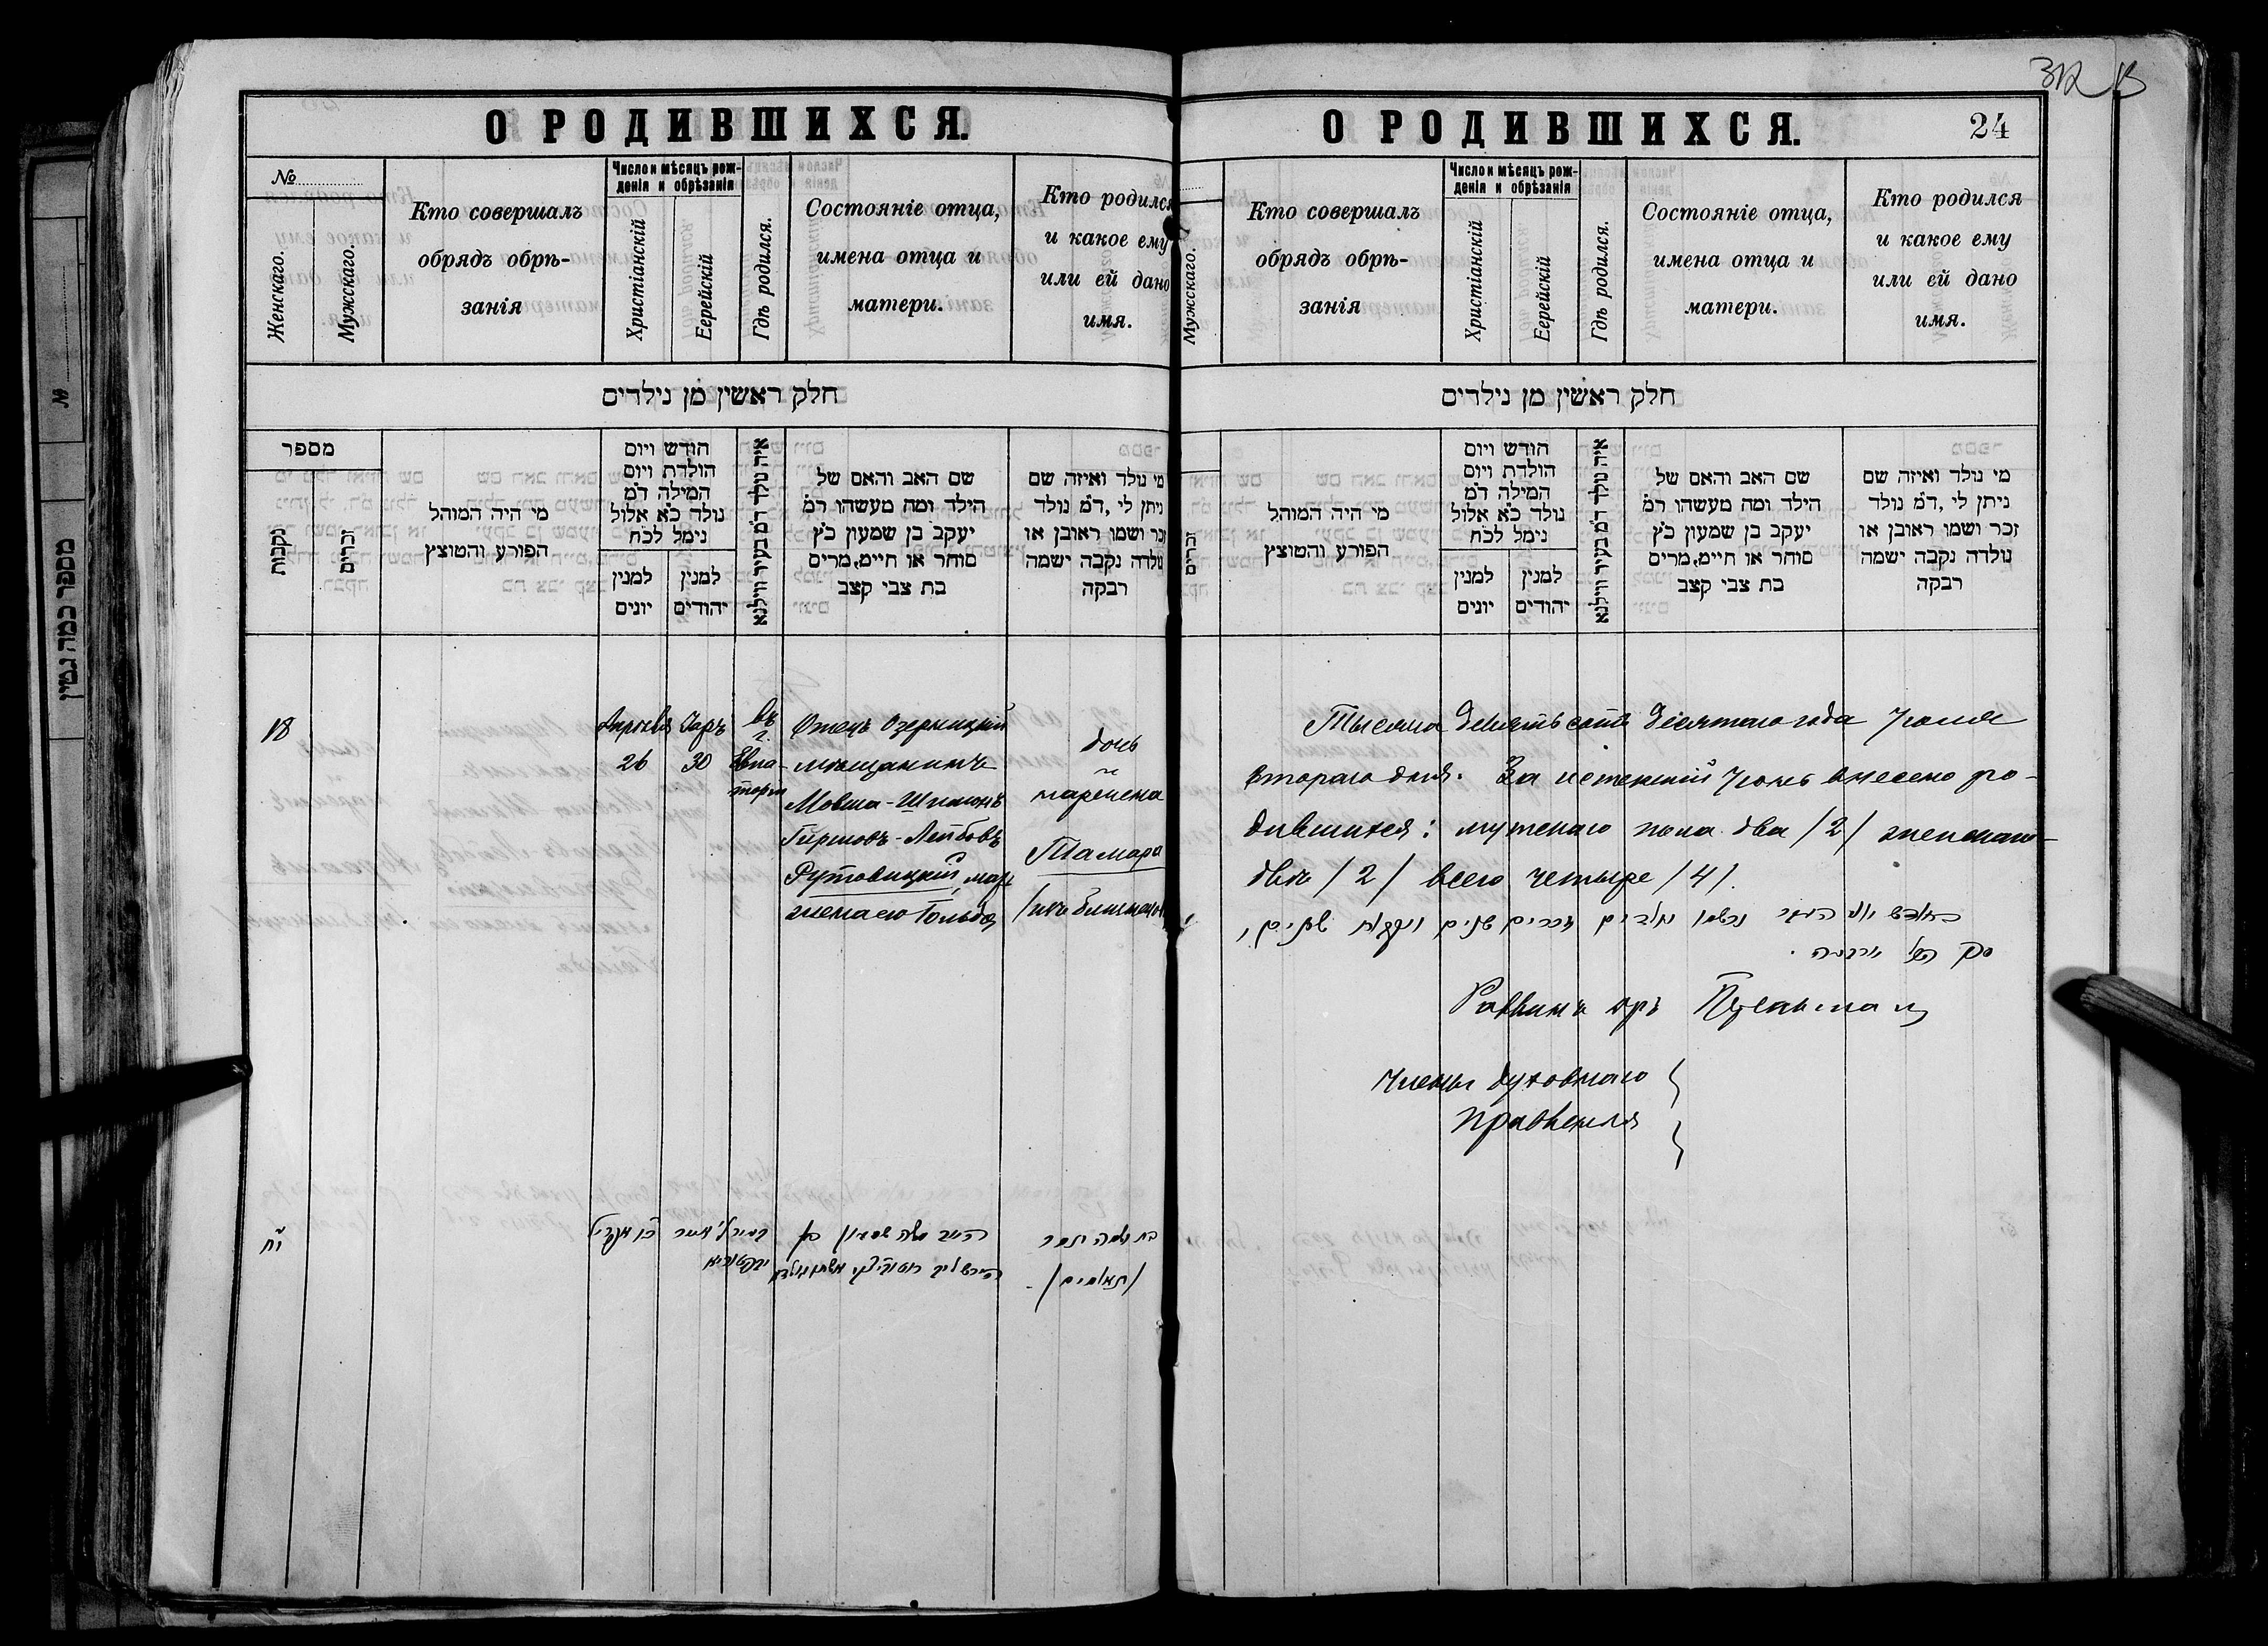 О РОДИВШИХСЯ.
№
Женскаго.
Мужскаго.
Кто совершалъ
обрядъ обрѣ-
занія
Число и мѣсяцъ рож-
денія и обрѣзанія
Христіанскій
Еврейскій
Гдѣ родился.
Состояніе отца,
имена отца и
матери.
Кто родился
и какое ему
или ей дано
имя.
חלק ראשין מן נילדים
מספר
נקבות
זכרים
מי היה המוהל
הפורע והמוצץ
חודש ויום
הולדת ויום
המילה ד״מ
נולד כ״א אלול
נימל לכ״ח
למנין
יונים
למנין
יהודים
איה נולד ד״מ בעיר ווילנא
שם האב והאם של
הילד ומה מעשהו ד״מ
יעקב בן שמעון כ״ץ
סוחר או חיים, מרים
בת צבי קצב
מי נולד ואיזה שם
ניתן לי, ד״מ נולד
זכר ושמו ראובן או
נולדה נקבה ישמה
רבקה
18
Апрѣля
26
Іаръ
30
въ
г.
Евпа-
торіи
Отецъ Озерницкій
мѣщанинъ
Мовша-Шимонъ
Гиршовъ-Лейбовъ
Рутовицкій, мать
жена его Гольда
дочь
наречена
Тамара
/изъ близнецовъ/
י״ח
(תאומים)
О РОДИВШИХСЯ.
24
Мужскаго.
Кто совершалъ
обрядъ обрѣ-
занія
Число и мѣсяцъ рож-
денія и обрѣзанія
Христіанскій
Еврейскій
Гдѣ родился.
Состояніе отца,
имена отца и
матери.
Кто родился
и какое ему
или ей дано
имя.
חלק ראשין מן נילדים
זכרים
מי היה המוהל
הפורע והמוצץ
חודש ויום
הולדת ויום
המילה ד״מ
נולד כ״א אלול
נימל לכ״ח
למנין
יונים
למנין
יהודים
איה נולד ד״מ בעיר ווילנא
שם האב והאם של
הילד ומה מעשהו ד״מ
יעקב בן שמעון כ״ץ
סוחר או חיים, מרים
בת צבי קצב
מי נולד ואיזה שם
ניתן לי, ד״מ נולד
זכר ושמו ראובן או
נולדה נקבה ישמה
רבקה
Тысяча девятьсотъ десятаго года Іюля
втораго дня. За истекшій Іюнь внесено ро-
дившихся: мужскаго пола два /2/ женскаго-
двѣ /2/ всего четыре /4/.
נולדים זכרים שנים ונקבות שתים,
סך הכל ארבעה.
Раввинъ
Члены духовнаго
правленія
№
מספר כמה נשין